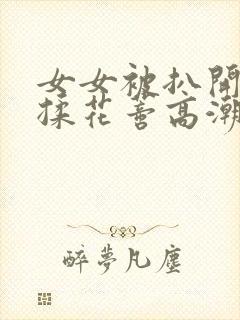 女女被扒開
揉花蒂高潮
醉夢凡塵